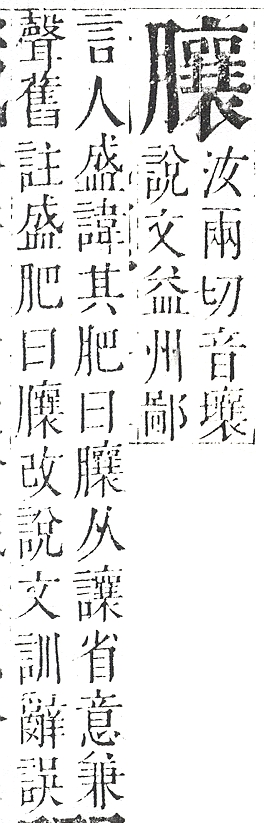 䑋
汝兩切音壤
說文益州鄙
言人盛諱其肥曰䑋从讓省意兼
聲舊註盛肥曰䑋改說文訓辭誤